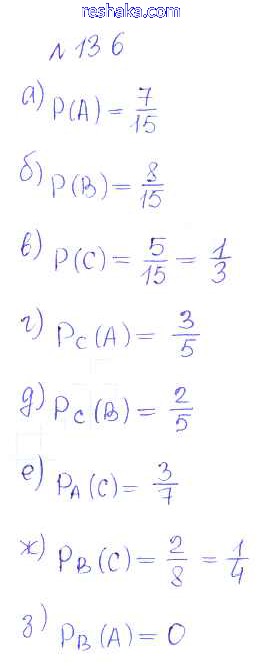 reshaka.com
№ 136
а) P(A) = 7/15
б) P(B) = 8/15
в) P(C) = 5/15 = 1/3
г) P_C(A) = 3/5
д) P_C(B) = 2/5
е) P_A(C) = 3/7
ж) P_B(C) = 2/8 = 1/4
з) P_B(A) = 0